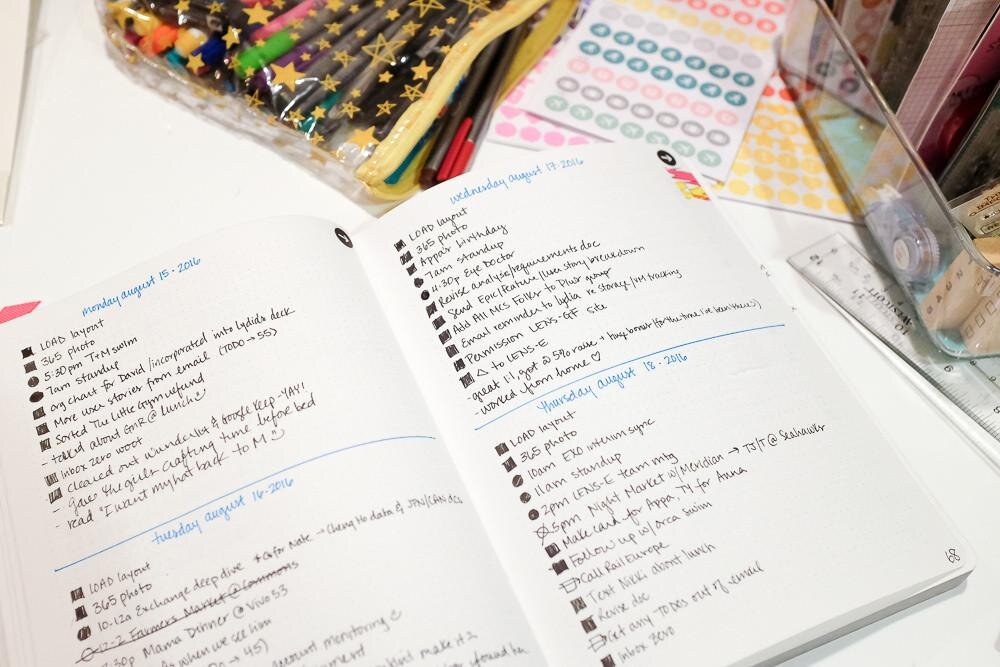 monday august 15 · 2016
LOAD layout
365 photo
5:30pm T+M swim
7am standup
org chart for David/incorporated into Lydia's deck
More user stories from email (TODO → 55)
Sorted The Little Gym refund
- talked about GNR @ lunch
- Inbox zero woot
- Cleared out wunderlist & Google Keep - YAY!
- Gave the girls crafting time before bed
- read "I want my hat back" to M
tuesday august 16 · 2016
LOAD layout
365 photo
10-12a Exchange deep dive
12-2 Farmers Market @ Commons
Mama Dinner @ Vivo 53
when we see him
wednesday august 17 · 2016
LOAD layout
365 photo
Appa's birthday
7am standup
4:30p Eye Doctor
Revise analysis/requirements doc
Send Epic/Feature/User story breakdown
Add All MCS Folks to group
Email reminder to Lydia re storage/VM tracking
Permission LENS-GF site
△ to LENS-E
- great 1:1, got a 5% raise + huge bonus (for the time I've been there!)
- worked from home ♡
thursday august 18 · 2016
LOAD layout
365 photo
10am EXO interim sync
11am standup
2pm LENS-E team mtg
5pm Night Market w/Meridian → TJ/T @ Seahawks
Make card for Appa, TY for Anna
Follow up w/Orca Swim
Call Rail Europe
Text Nikki about lunch
Revise doc
Get any TODOs out of email
Inbox zero
68